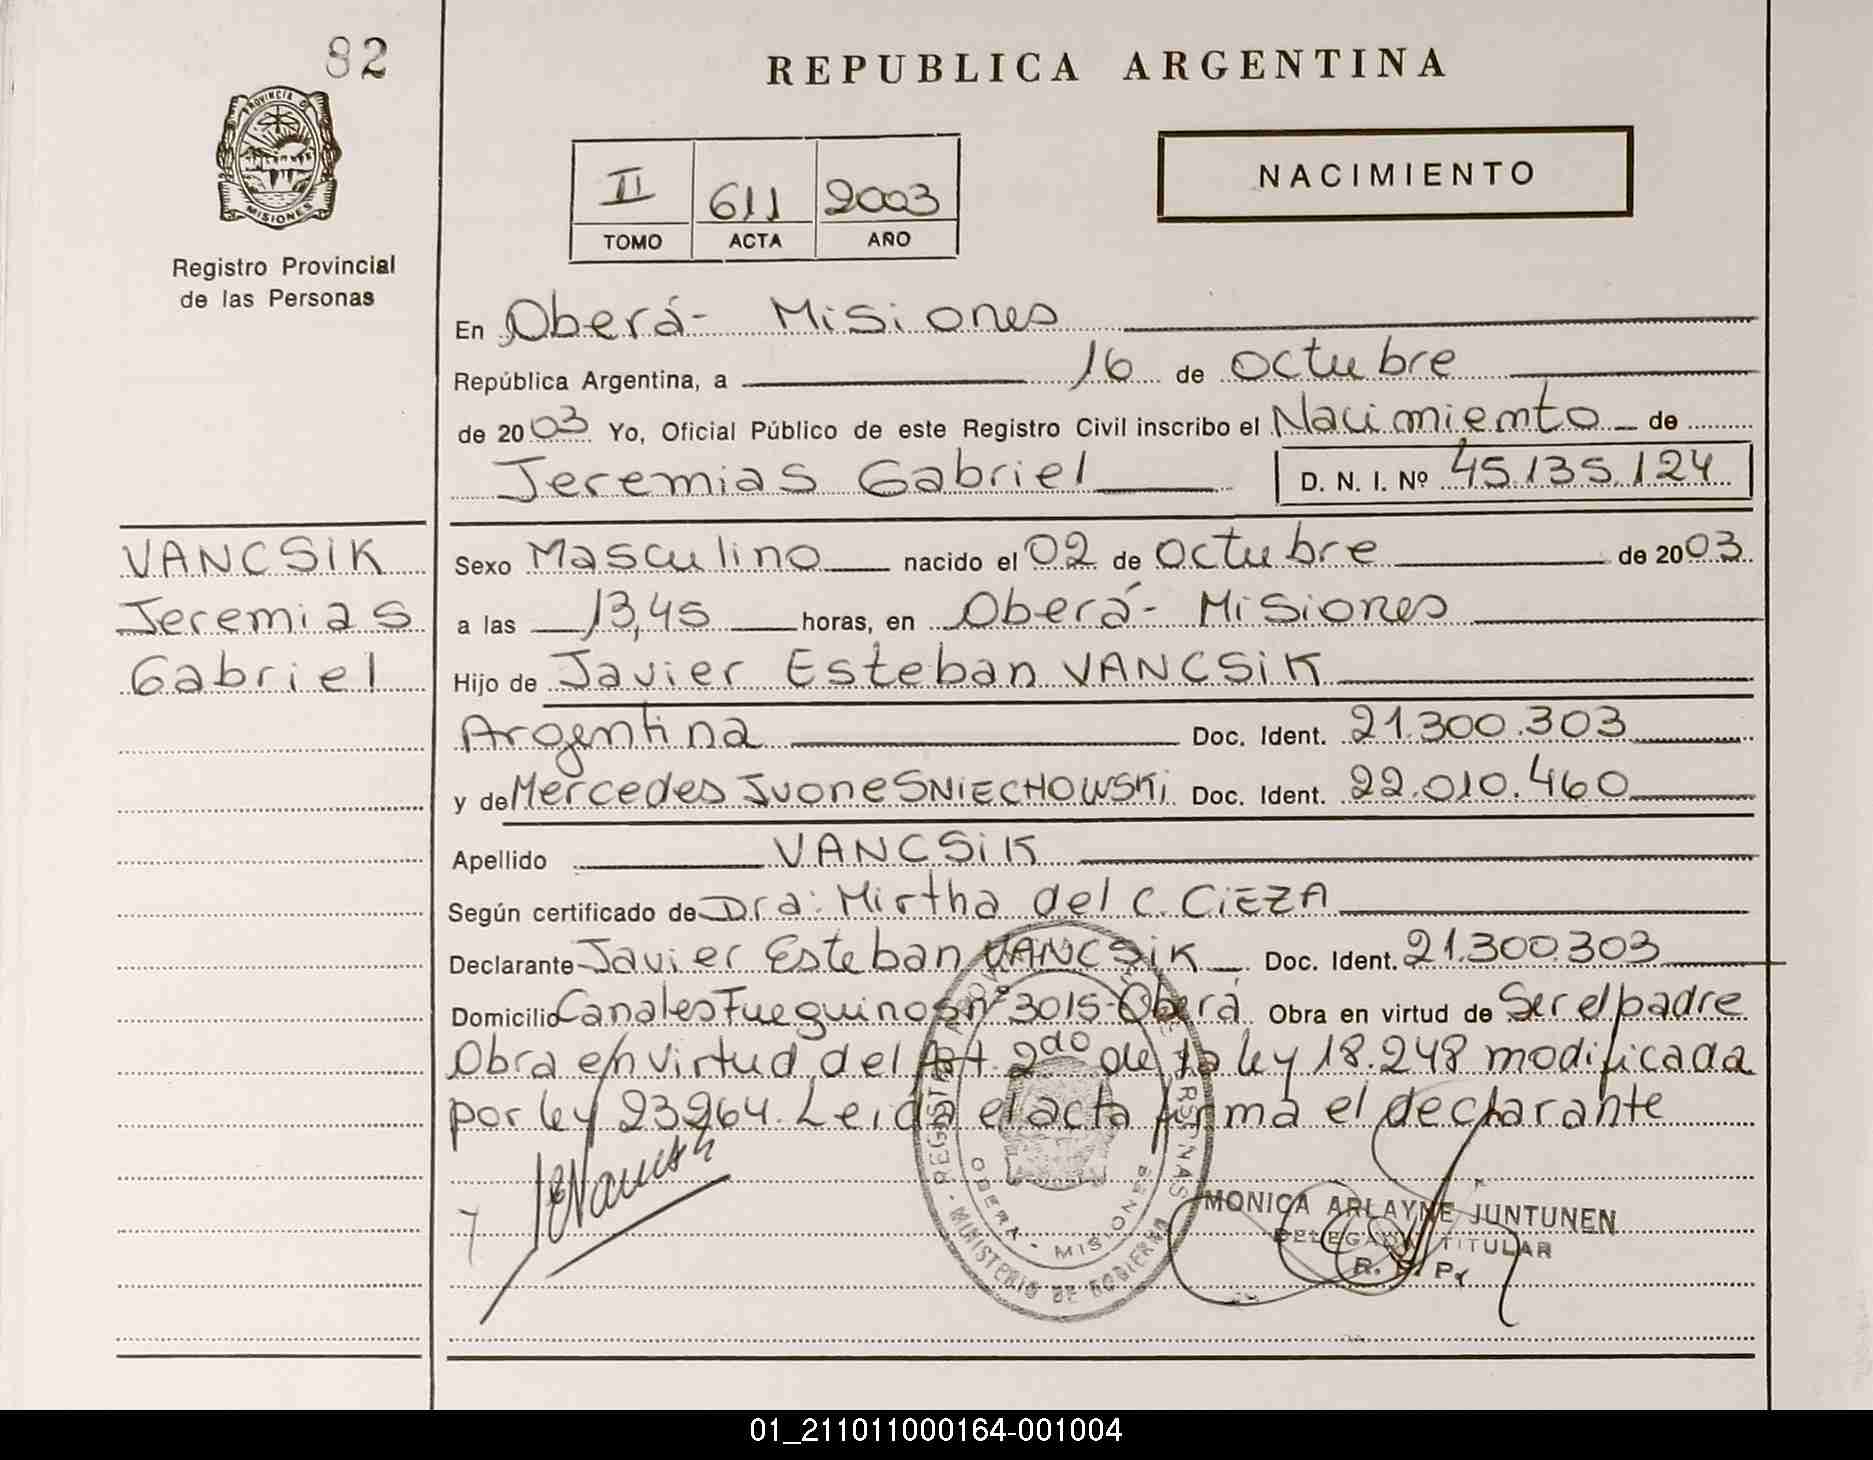 82
PROVINCIA DE
MISIONES
Registro Provincial
de las Personas
REPUBLICA ARGENTINA
II 611 2003
TOMO ACTA AÑO
NACIMIENTO
En Oberá- Misiones
República Argentina, a 16 de octubre
de 2003 Yo, Oficial Público de este Registro Civil inscribo el Nacimiento de
Jeremias Gabriel D. N. I. Nº 45.135.124
VANCSIK
Jeremias
Gabriel
Sexo Masculino nacido el 02 de octubre de 2003
a las 13,45 horas, en Oberá- Misiones
Hijo de Javier Esteban VANCSIK
Argentina Doc. Ident. 21.300.303
y de Mercedes Ivone SNIECHOWSKI Doc. Ident. 22.010.460
Apellido VANCSIK
Según certificado de Dra: Mirtha del C. CIEZA
Declarante Javier Esteban VANCSIK Doc. Ident. 21.300.303
Domicilio Canales Fueguinos nº 3015-Oberá Obra en virtud de Ser el padre
Obra en virtud del Art. 2do de la ley 18.248 modificada
por ley 23264. Leida el acta firma el declarante
OBERA - MISIONES
MINISTERIO DE GOBIERNO
MONICA ARLAYNE JUNTUNEN
DELEGADA TITULAR
R. P. P.
01_211011000164-001004